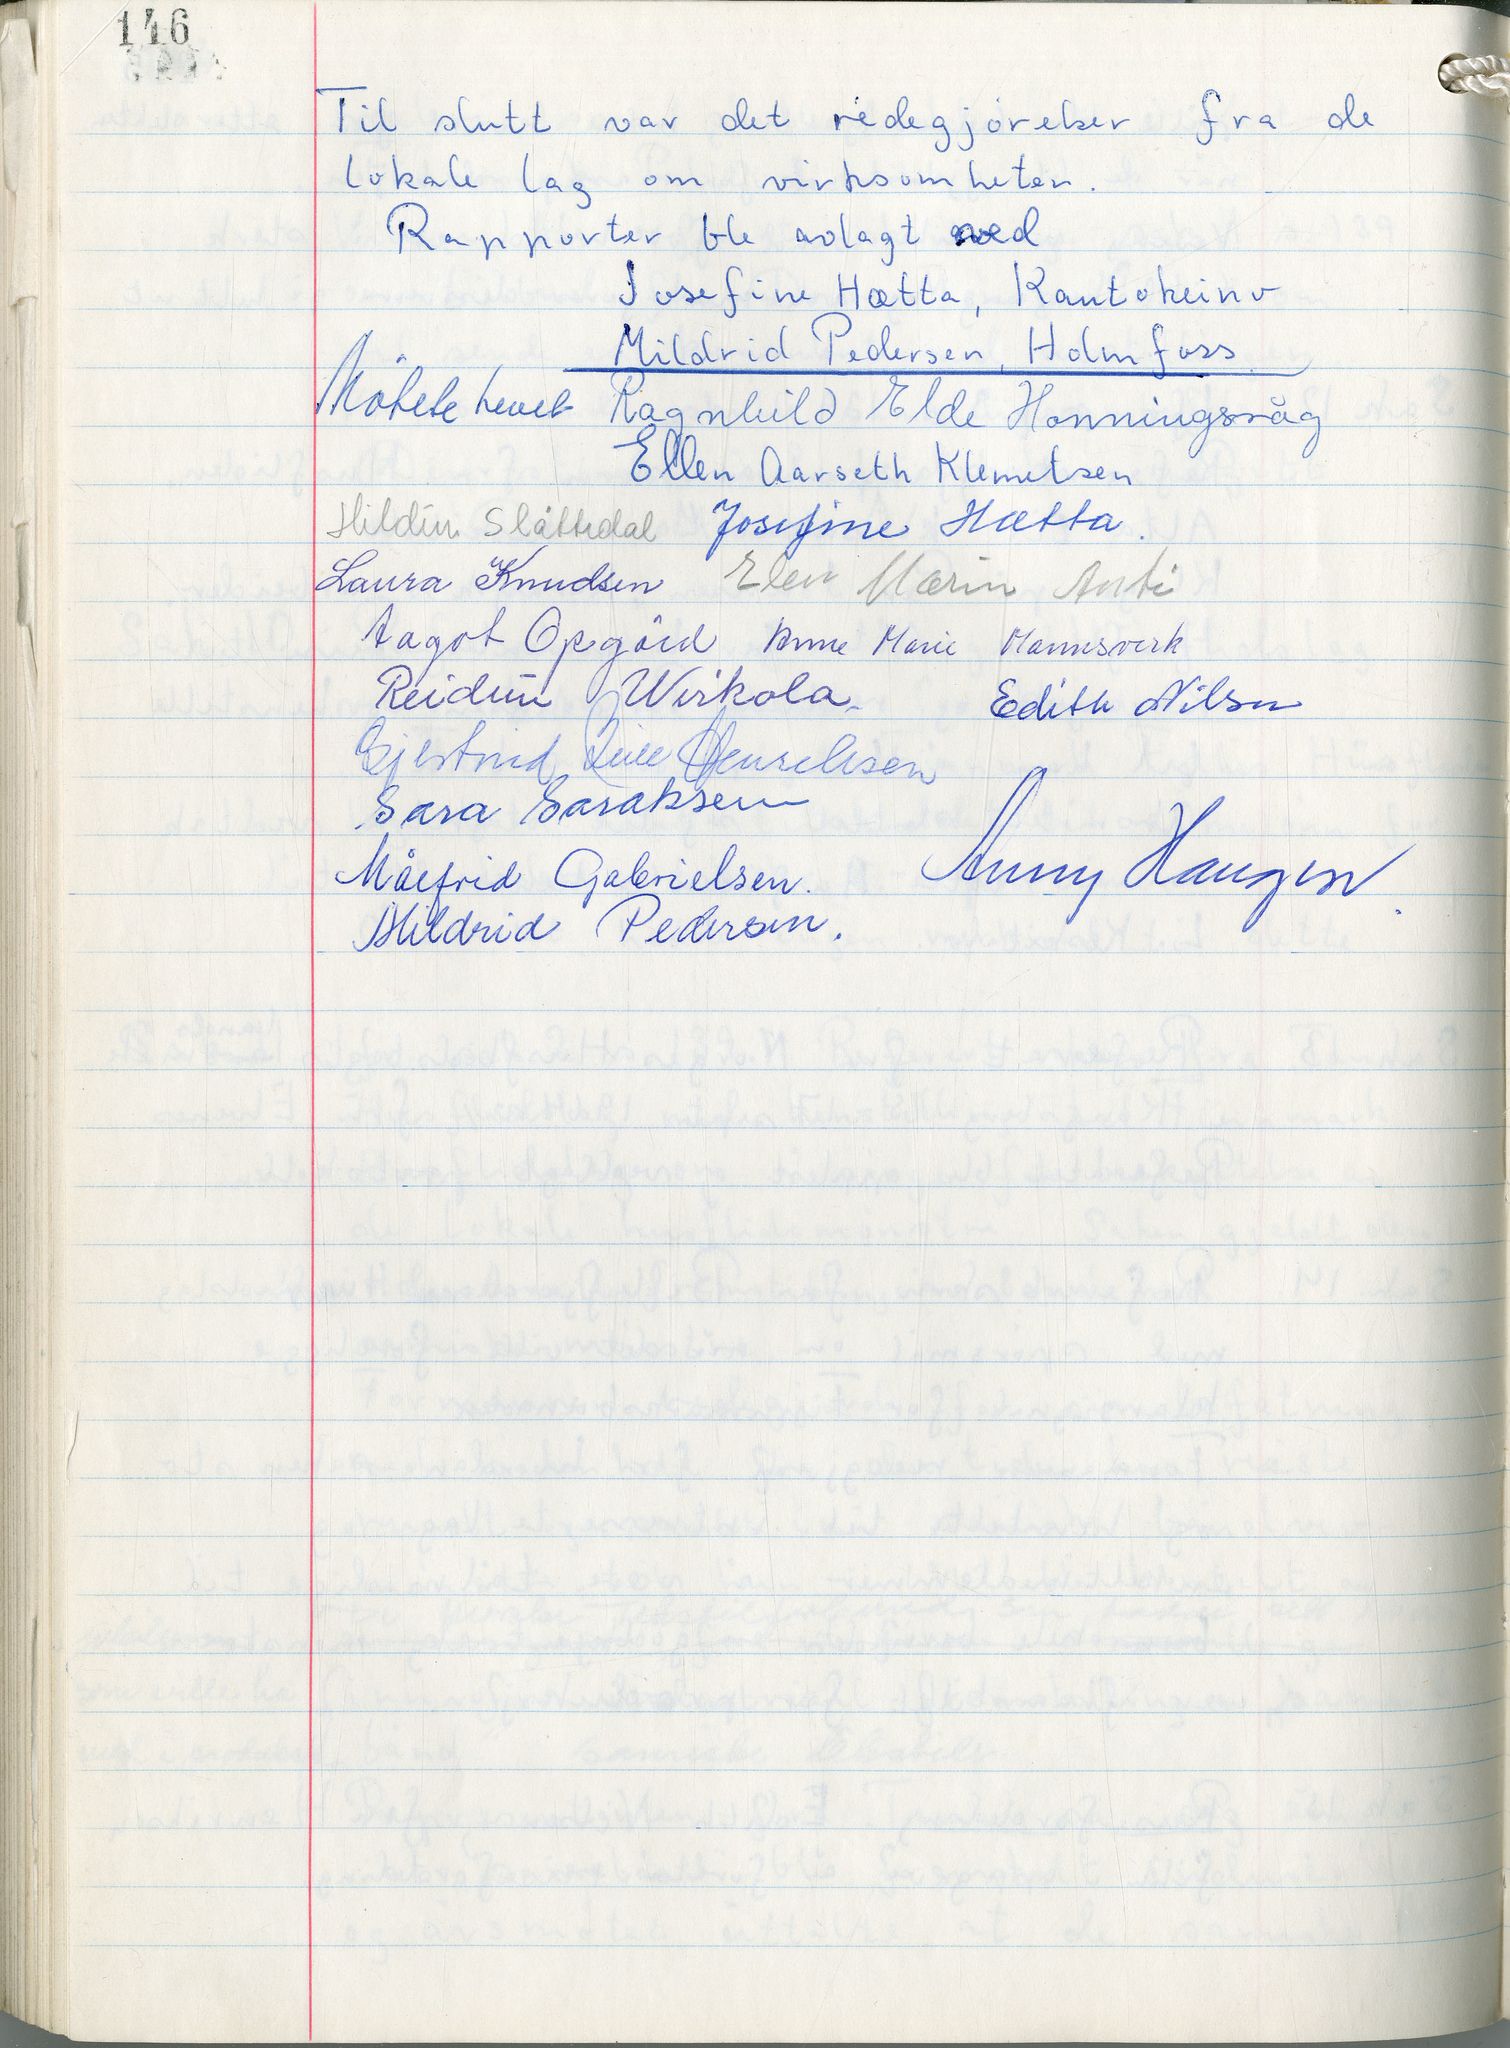 146
Til slutt var det redegjørelser fra de
lokale lag om virksomheten.
Rapporter ble avlagt ved
Josefine Hætta, Kautokeino
Mildrid Pedersen, Holmfoss
Møtete hevet Ragnhild Elde Honningsvåg
Ellen Aarseth Klemetsen
Hildur Slåttedal Josefine Hætta.
Laura Knudsen Elen Marin Anti
Aagot Opgård Anne Marie Mannsverk
Reidun Wirkola Edith Nilsen
Gjertrud Henriksen
Sara Saraksen
Målfrid Gabrielsen. Anny Haugen
Mildrid Pedersen.